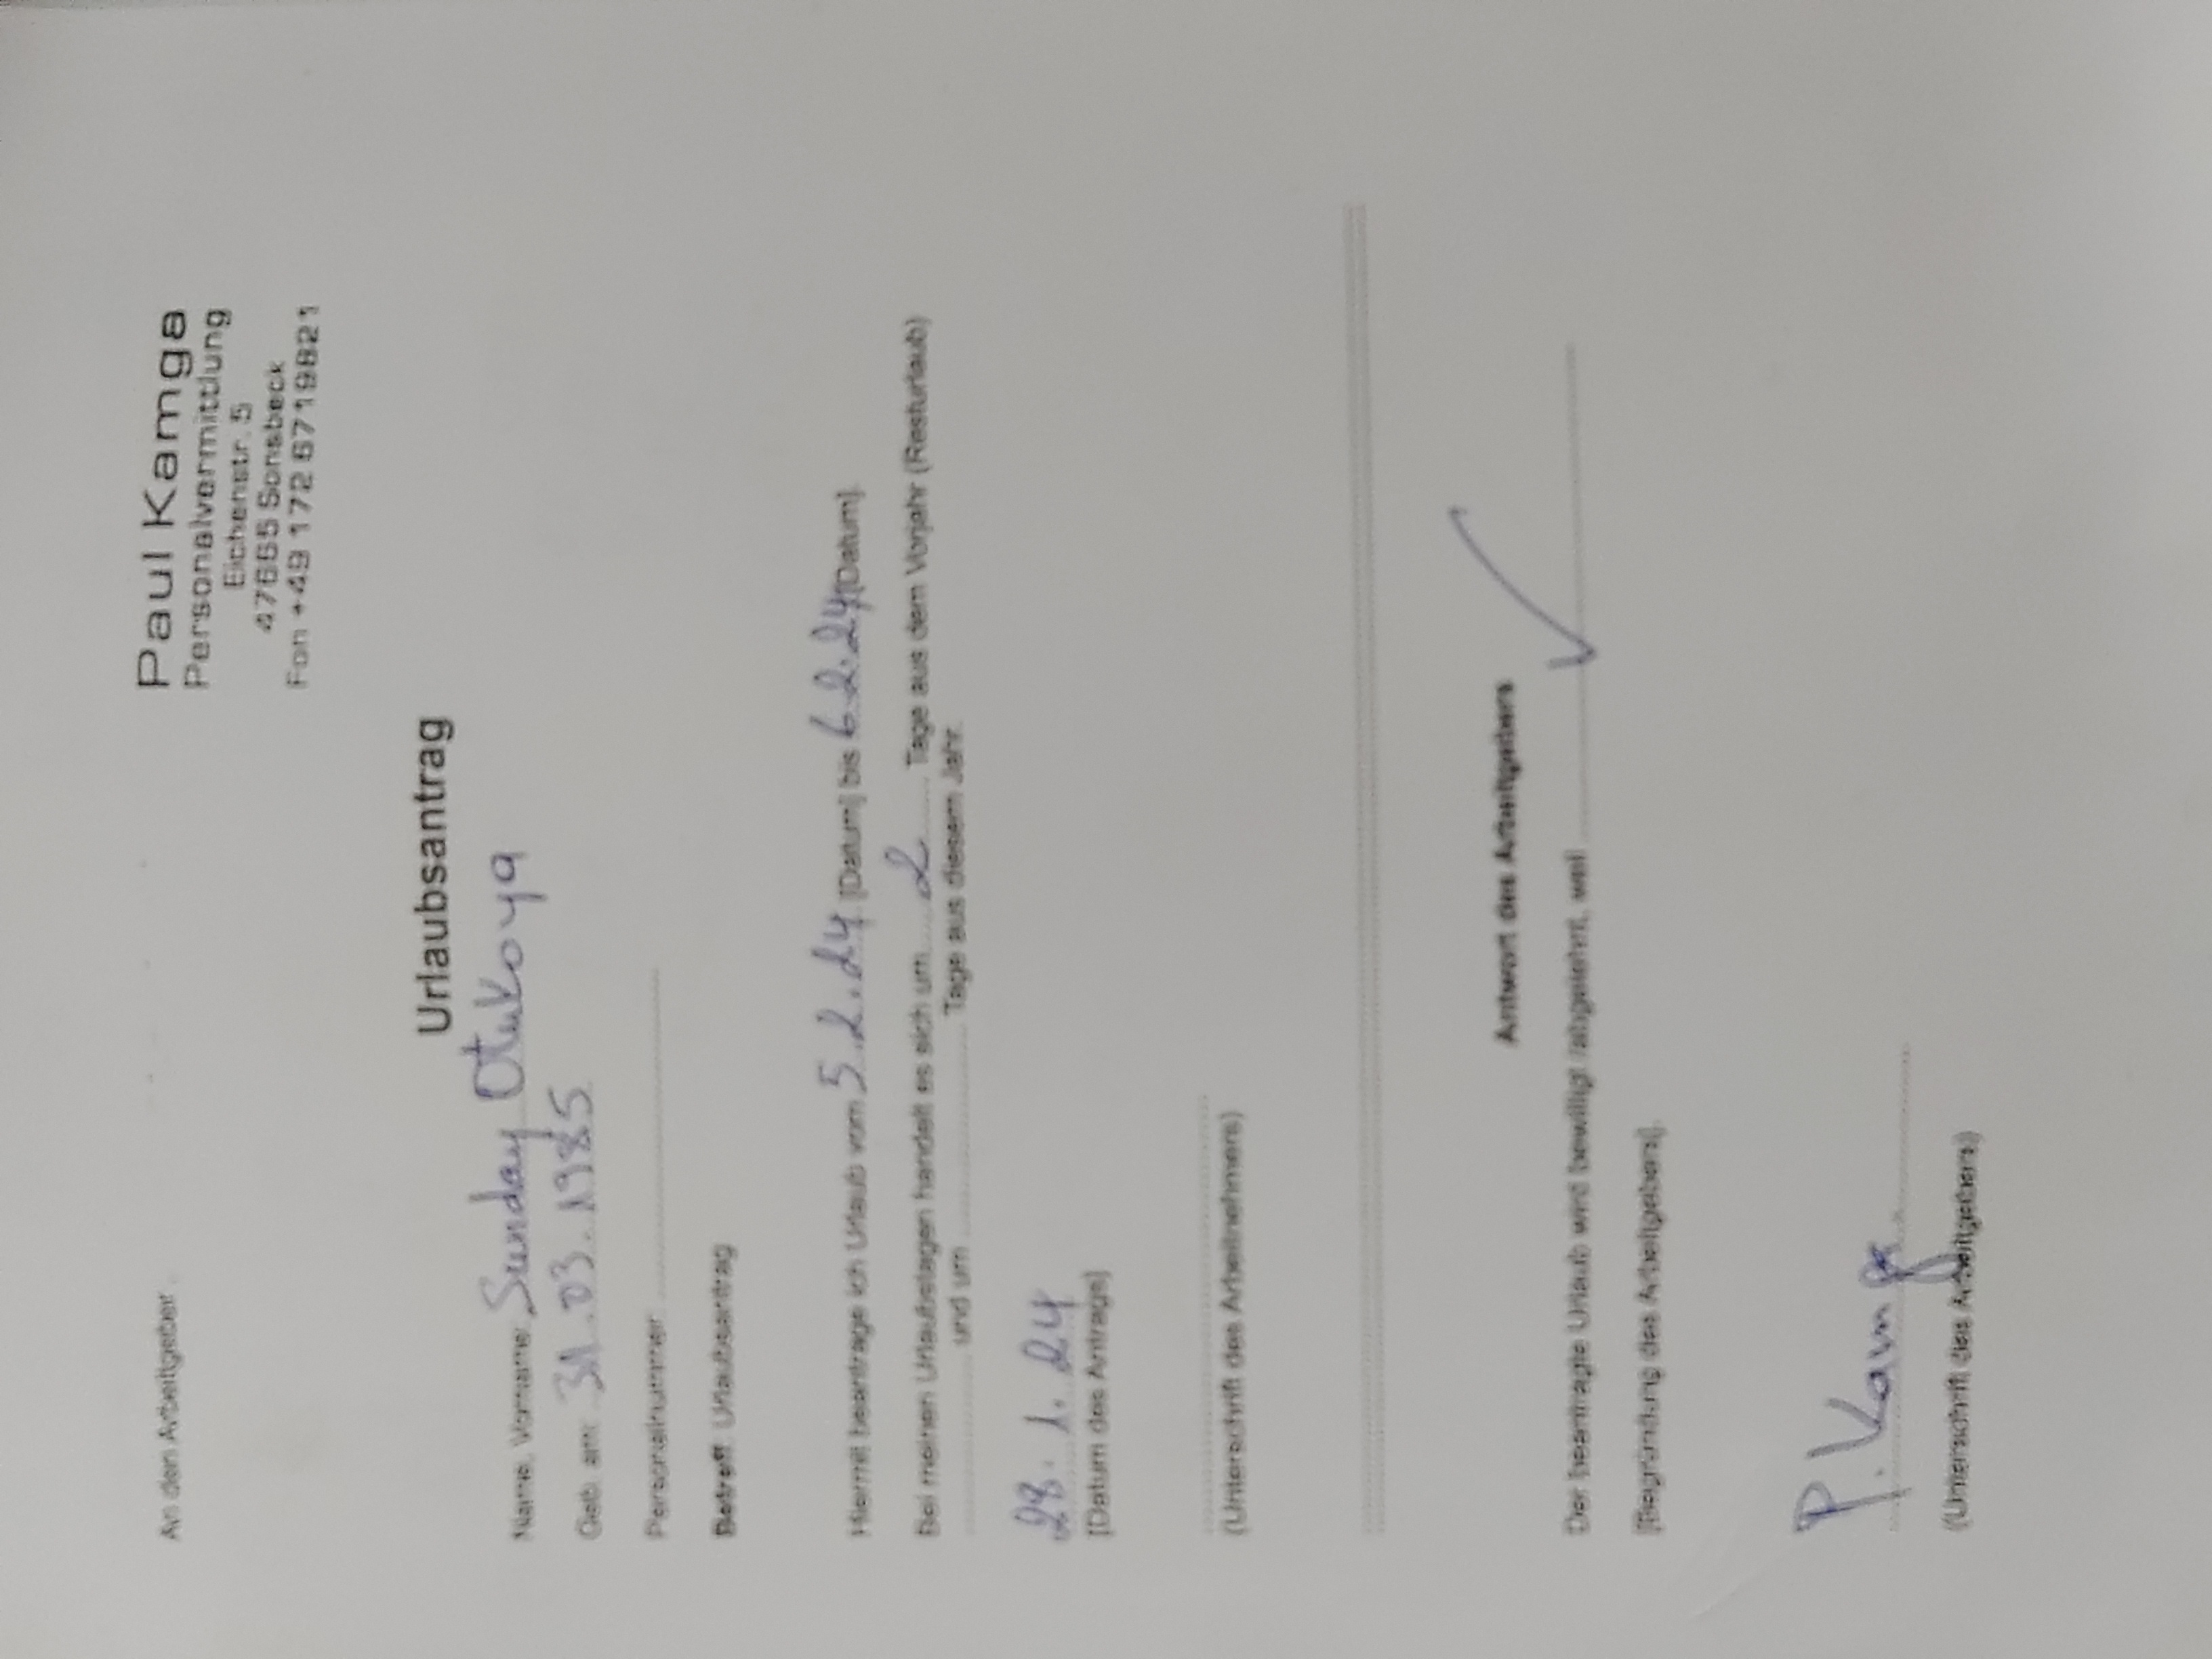 An den Arbeitgeber
Paul Kamga
Personalvermittlung
Eichenstr. 5
47665 Sonsbeck
Fon +49 172 6719821
Urlaubsantrag
Name, Vorname: Sunday Otukoya
Geb. am: 31.03.1985
Personalnummer:
Betreff: Urlaubsantrag
Hiermit beantrage ich Urlaub vom 5.2.24 [Datum] bis 6.2.24 [Datum].
Bei meinen Urlaubstagen handelt es sich um 2 Tage aus dem Vorjahr (Resturlaub)
und um Tage aus diesem Jahr.
28.1.24
[Datum des Antrags]
(Unterschrift des Arbeitnehmers)
Antwort des Arbeitgebers
Der beantragte Urlaub wird bewilligt /abgelehnt, weil
[Begründung des Arbeitgebers].
P. Kamga
(Unterschrift des Arbeitgebers)